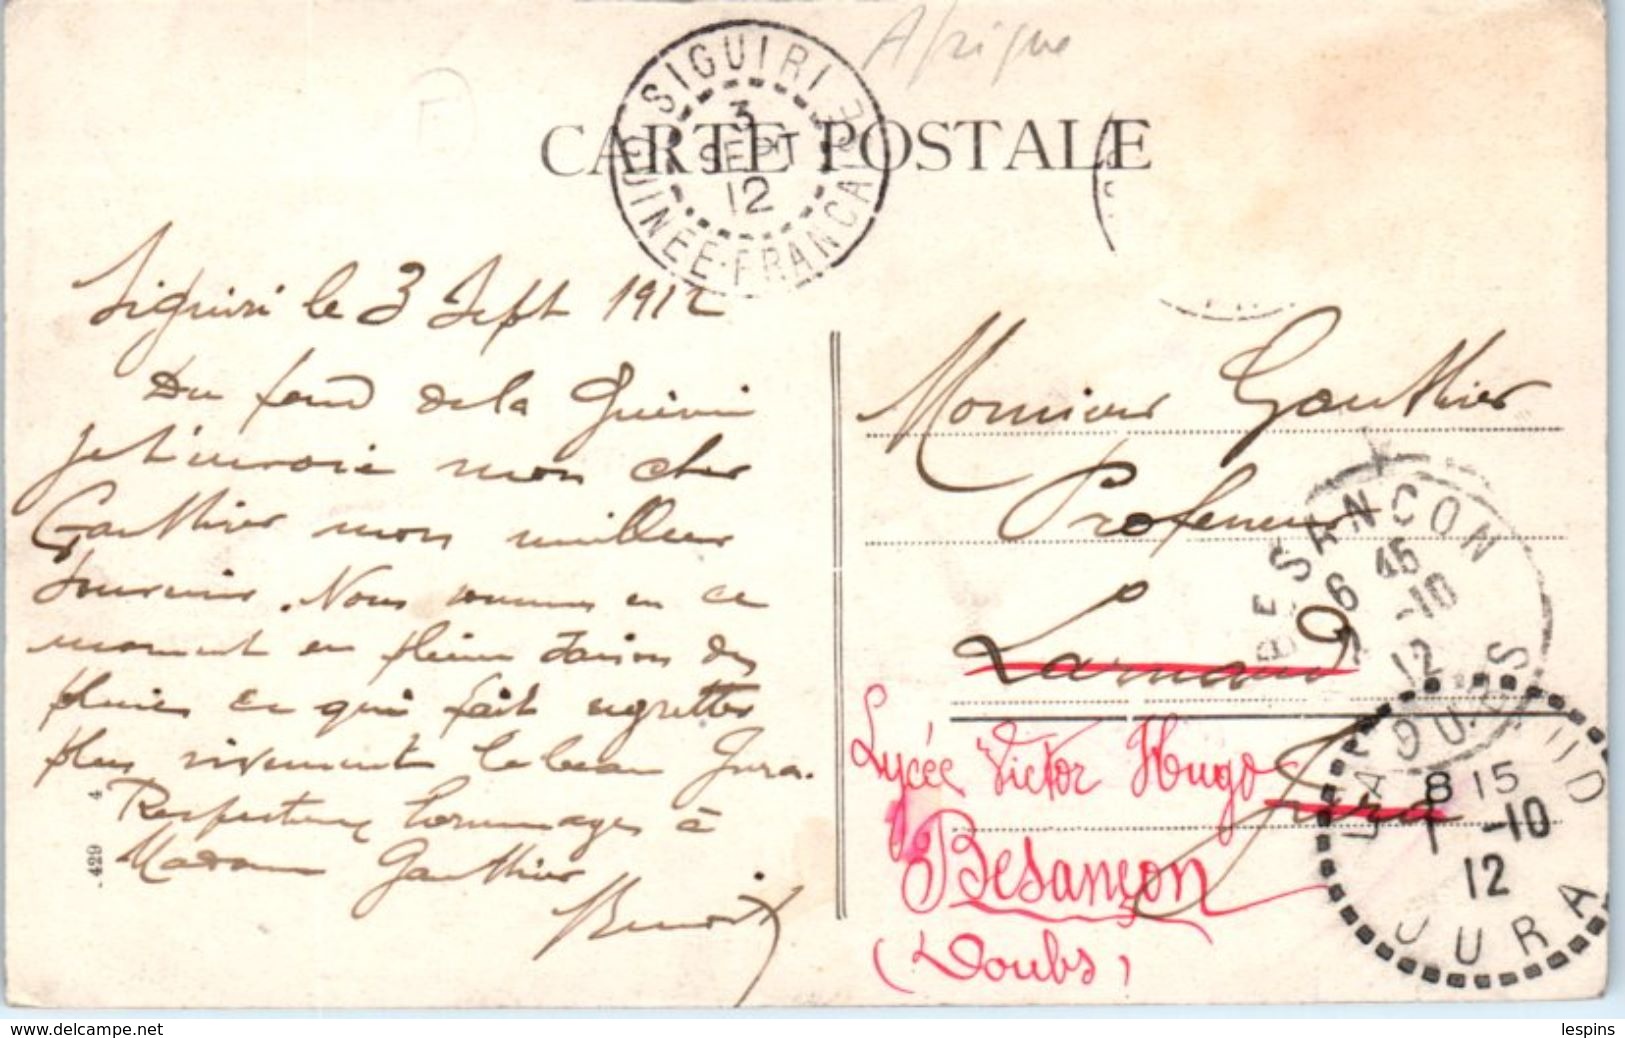 Afrique
SIGUIRI
3
SEPT
12
GUINÉE-FRANCAISE
CARTE POSTALE
Siguiri le 3 Sept 1912
Du fond de la Guinée
je t'envoie mon cher
Gauthier mon meilleur
souvenir. Nous sommes en ce
moment en pleine saison des
pluies ce qui fait regretter
plus vivement le beau Jura.
Respectueux hommages à
Madame Gauthier
Benoit
429 4
Monsieur Gauthier
Professeur
Larnaud
Jura
Lycée Victor Hugo
Besançon
(Doubs)
BESANCON
6 45
2 -10
12
DOUBS
LARNAUD
8 15
1 -10
12
JURA
delcampe.net
lespins